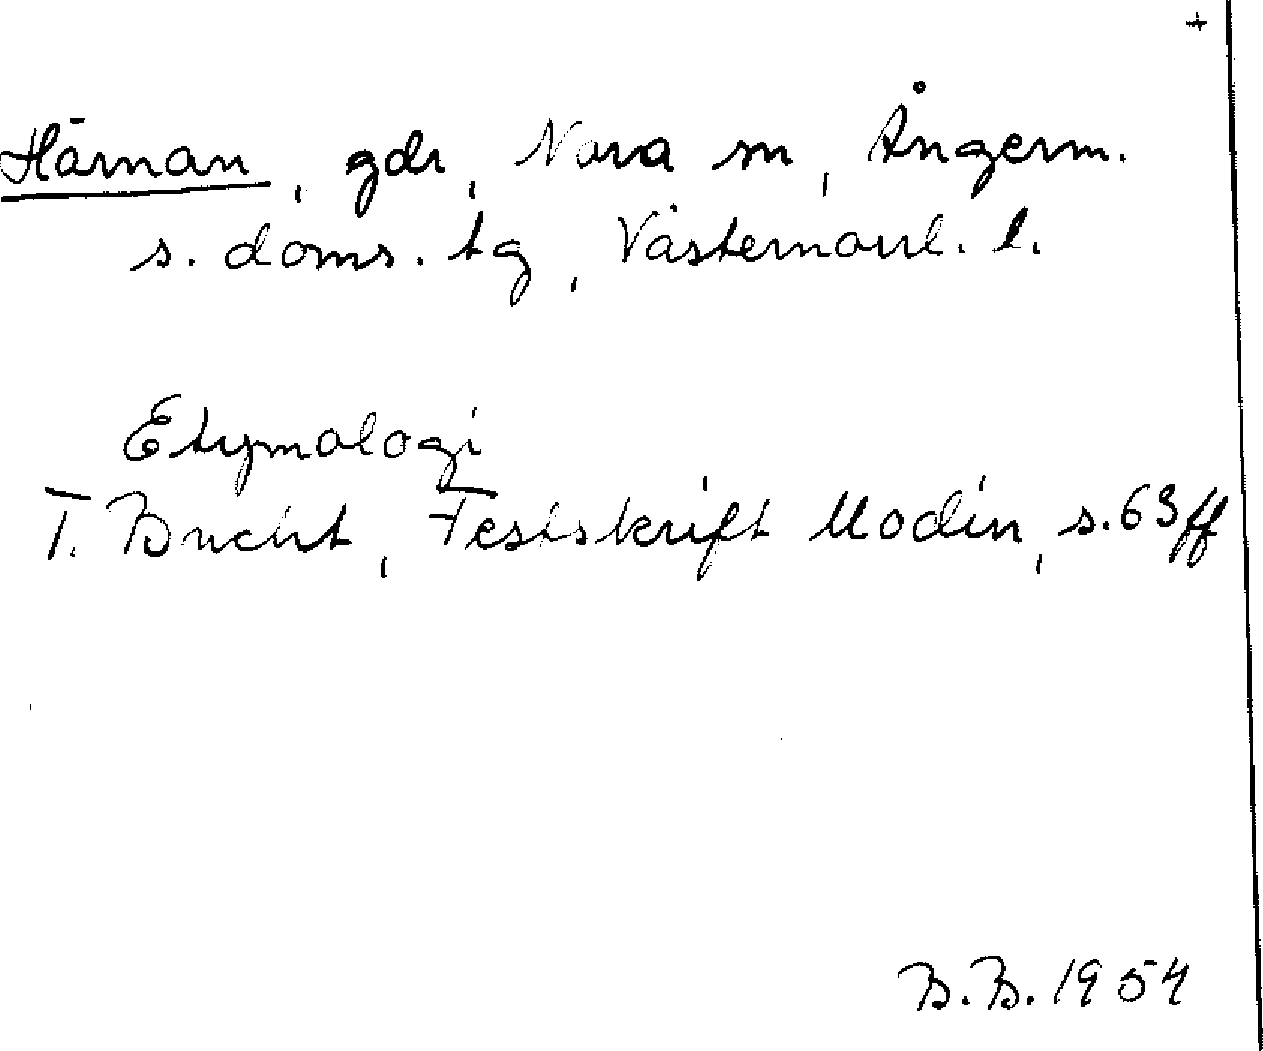 +
Härnan, gdr, Nora sn, Ångerm.
s. doms. tg, Västernorrl. l.
Etymologi
T. Bucht, Festskrift Modin, s. 63 ff
B.B. 1954